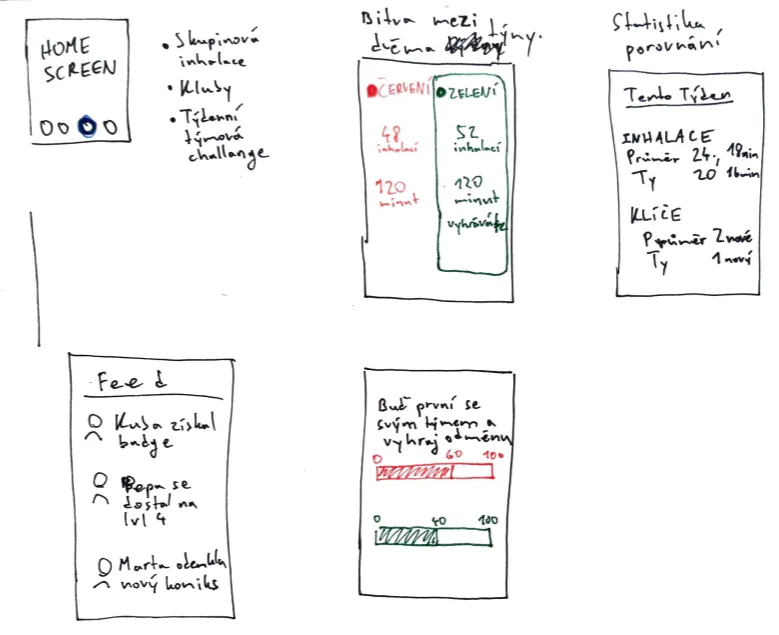 HOME
SCREEN
• Skupinová
inhalace
• Kluby
• Týdenní
týmová
challange
Bitva mezi
dvěma týny.
ČERVENÍ
48
inhalací
120
minut
ZELENÍ
52
inhalací
120
minut
vyhráváte
Statistika
porovnání
Tento Týden
INHALACE
Průměr 24., 18min
Ty 20 16min
KLÍČE
Průměr 2 nové
Ty 1 nový
Feed
Kuba získal
badge
Pepa se
dostal na
lvl 4
Marta odemkla
nový komiks
Buď první se
svým týmem a
vyhraj odměnu
0 60 100
0 40 100